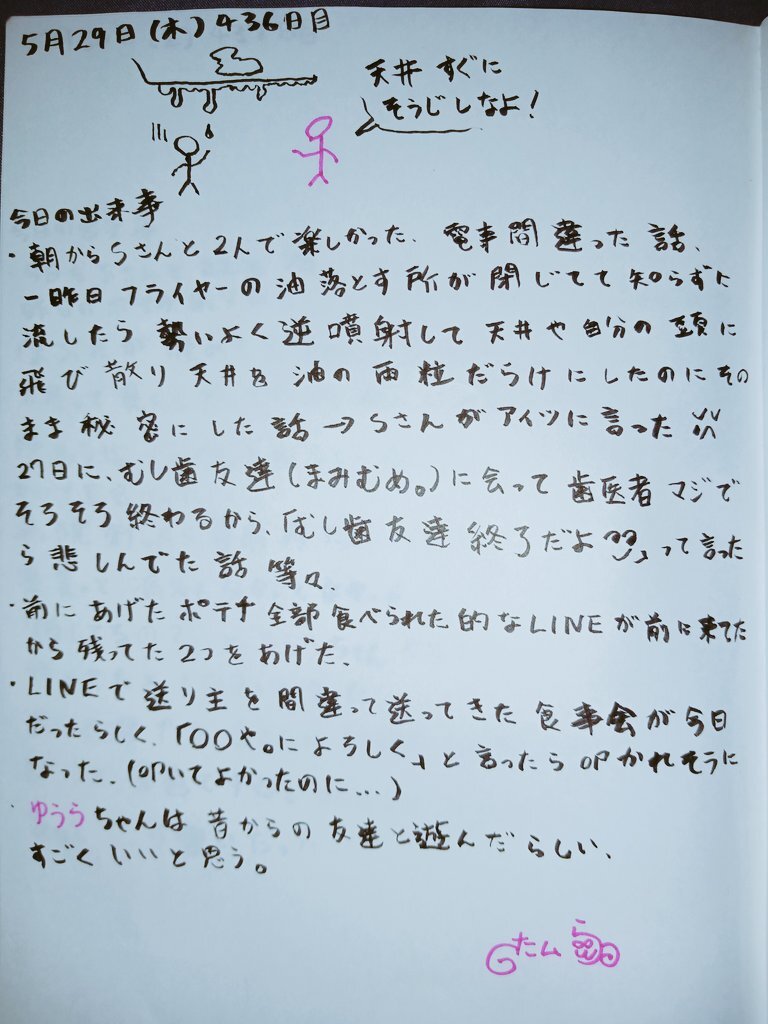 5月29日(木)436日目
天井 すぐに
そうじしなよ!
今日の出来事
・朝からSさんと2人で楽しかった、電車間違った話、
一昨日フライヤーの油落とす所が閉じてて知らずに
流したら勢いよく逆噴射して天井や自分の頭に
飛び散り天井を油の雨粒だらけにしたのにその
まま秘密にした話→Sさんがアイツに言った
27日に、むし歯友達(まみむめ。)に会って歯医者マジで
そろそろ終わるから、「むし歯友達終了だよ」って言った
ら悲しんでた話等々、
・前にあげたポテチ全部食べられた的なLINEが前に来てた
から残ってた2つをあげた、
・LINEで送り主を間違って送ってきた食事会が今日
だったらしく、「〇〇や。によろしく」と言ったら叩かれそうに
なった、(叩いてよかったのに...)
・ゆうらちゃんは昔からの友達と遊んだらしい、
すごくいいと思う。